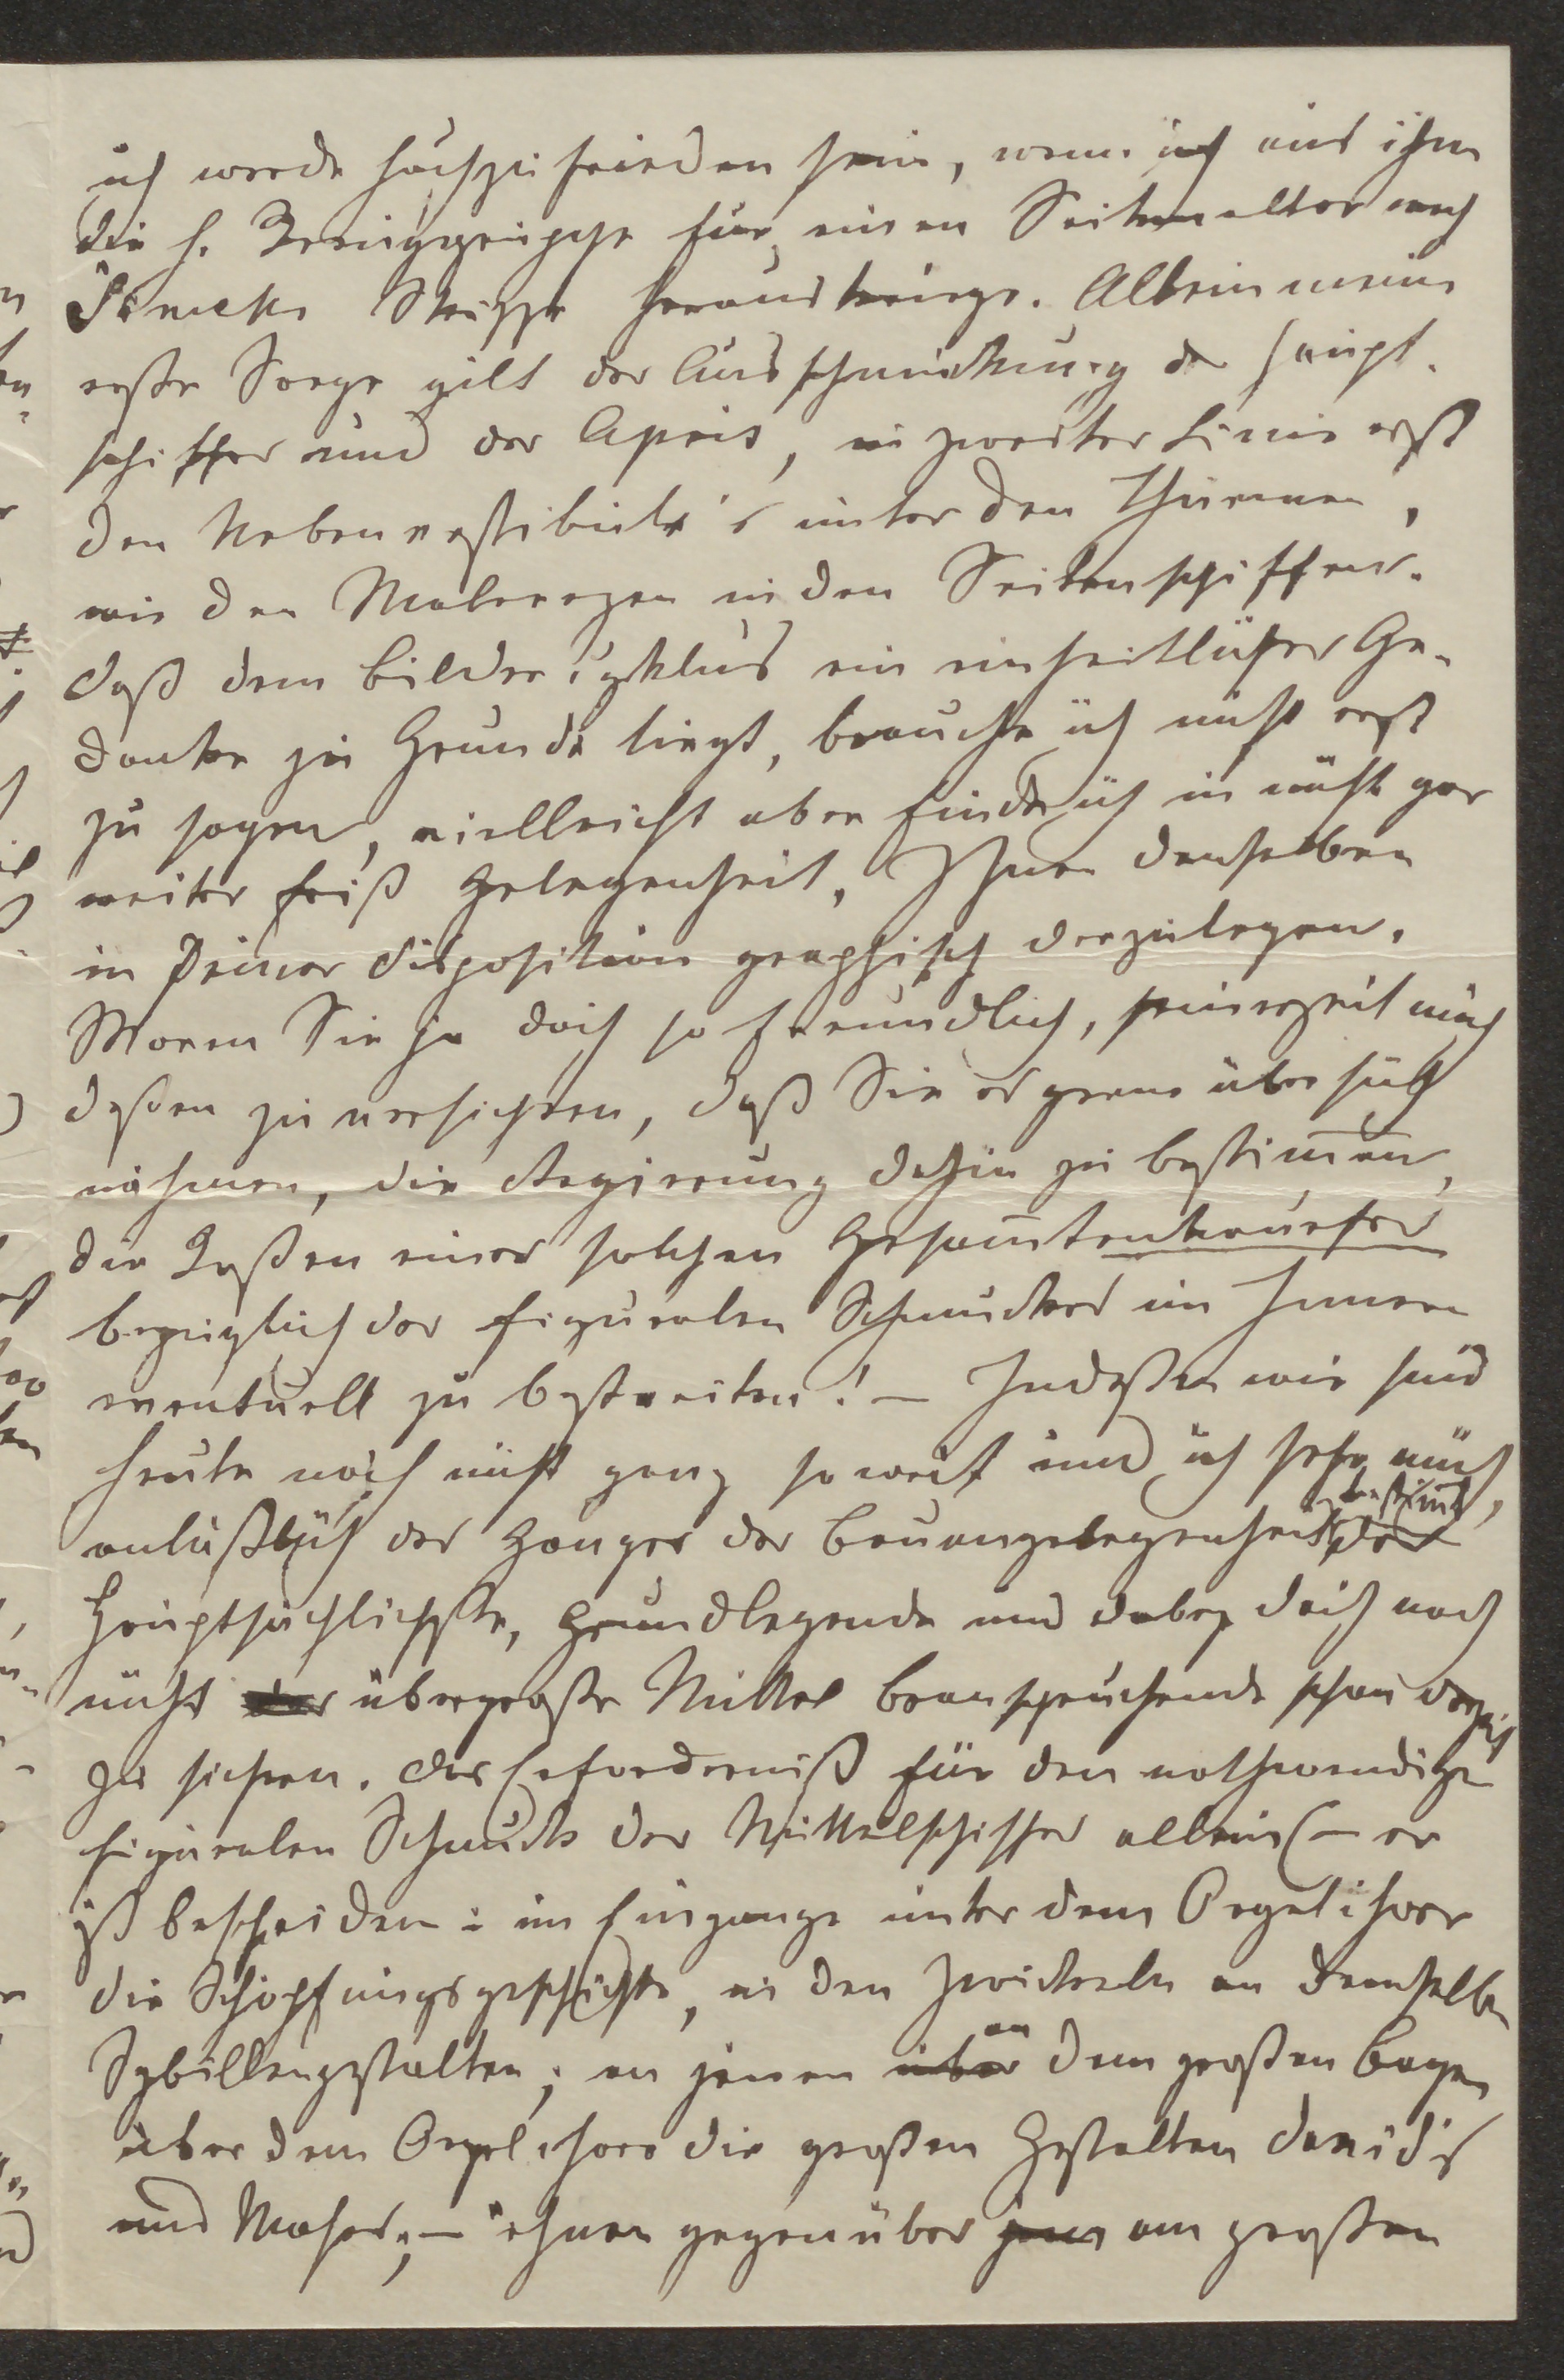 ich werde hochzufrieden sein, wenn ich aus ihm
die h. Kreuzgruppe für einen Seitenaltar nach
Skizze herausbringe. Allein meine
erste Sorge gilt der Ausschmückung des Haupt-
schiffes und der Apsis, in zweiter Linie erst
den Nebenvestibule's unter den Thürmen,
wie den Malereyen in den Seitenschiffen.
Daß dem Bildercyklus ein einheitlicher Ge-
danke zu Grunde liegt, brauche ich nicht erst
zu sagen, vielleicht aber finde ich in nicht gar
weiter Gelegenheit, Ihnen denselben
in seiner Disposition graphisch darzulegen.
Waren Sie ja doch so freundlich, seinerzeit mich
deßen zu versichern, daß Sie es gerne über sich
nähmen, die Regierung dahin zu bestimmen,
die Kosten eines solchen Gesammtentwurfes
bezüglich des figuralen Schmuckes im Innern
eventuell zu bestreiten! – Indeßen wir sind
heute noch nicht ganz so weit und ich sehe mich,
anläßlich des Ganges der Bauangelegenheit, bestimmt, das
Hauptsächlichste, Grundlegende und dabey doch noch
nicht übergroße Mittel beanspruchende schon
zu sichern. Das Erforderniß für den nothwendigen
figuralen Schmuck des Mittelschiffes allein (– er
ist bescheiden: im Eingange unter dem Orgelchore
die Schöpfungsgeschichte, in den Zwickeln an demselben
Sybillengestalten; an jenen über an dem großen Bogen
über dem Orgelchore die großen Gestalten David's
und Moses; – ihnen gegenüber am großen